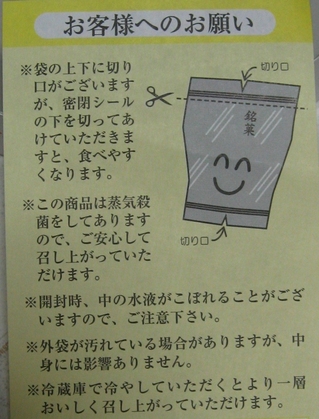 お客様へのお願い
※袋の上下に切り
口がございます
が、密閉シール
の下を切ってあ
けていただきま
すと、食べやす
くなります。
切り口
銘菓
切り口
※この商品は蒸気殺
菌をしてあります
ので、ご安心して
召し上がっていた
だけます。
※開封時、中の水液がこぼれることがござ
いますので、ご注意下さい。
※外袋が汚れている場合がありますが、中
身には影響ありません。
※冷蔵庫で冷やしていただくとより一層
おいしく召し上がっていただけます。